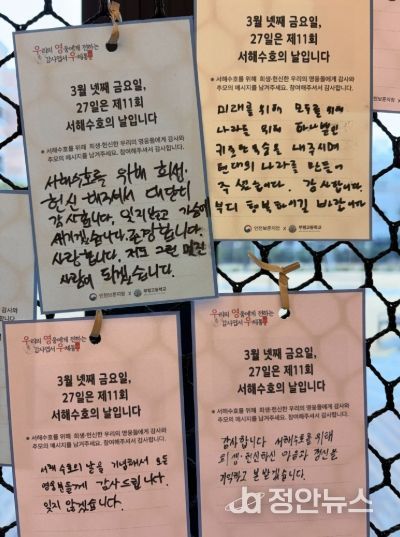 우리의 영웅에게 전하는
감사엽서 우체통
3월 넷째 금요일,
27일은 제11회
서해수호의 날입니다
※ 서해수호를 위해 희생·헌신한 우리의 영웅들에게 감사와
추모의 메시지를 남겨주세요. 참여해주셔서 감사합니다.
서해수호를 위해 희생.
헌신 해주셔서 대단히
감사합니다. 잊지않고 가슴에
새기겠습니다. 존경합니다.
사랑합니다. 저도 그런 멋진
사람이 되겠습니다.
인천보훈지청 X 부평고등학교
3월 넷째 금요일,
27일은 제11회
서해수호의 날입니다
※ 서해수호를 위해 희생·헌신한 우리의 영웅들에게 감사와
추모의 메시지를 남겨주세요. 참여해주셔서 감사합니다.
미래를 위해 모두를 위해
나라를 위해 하나뿐인
귀중한 목숨을 내주시며
현대의 나라를 만들어
주셨습니다. 감사합니다.
부디 행복하시길 바랍니다
인천보훈지청 X 부평고등학교
우리의 영웅에게 전하는
감사엽서 우체통
3월 넷째 금요일,
27일은 제11회
서해수호의 날입니다
※ 서해수호를 위해 희생·헌신한 우리의 영웅들에게 감사와
추모의 메시지를 남겨주세요. 참여해주셔서 감사합니다.
서해 수호의 날을 기념해서 모든
영웅분들께 감사드립니다.
잊지 않겠습니다.
우리의 영웅에게 전하는
감사엽서 우체통
3월 넷째 금요일,
27일은 제11회
서해수호의 날입니다
※ 서해수호를 위해 희생·헌신한 우리의 영웅들에게 감사와
추모의 메시지를 남겨주세요. 참여해주셔서 감사합니다.
감사합니다 서해수호를 위해
희생·헌신하신 마음과 정신을
기억하고 본받겠습니다.
정안뉴스